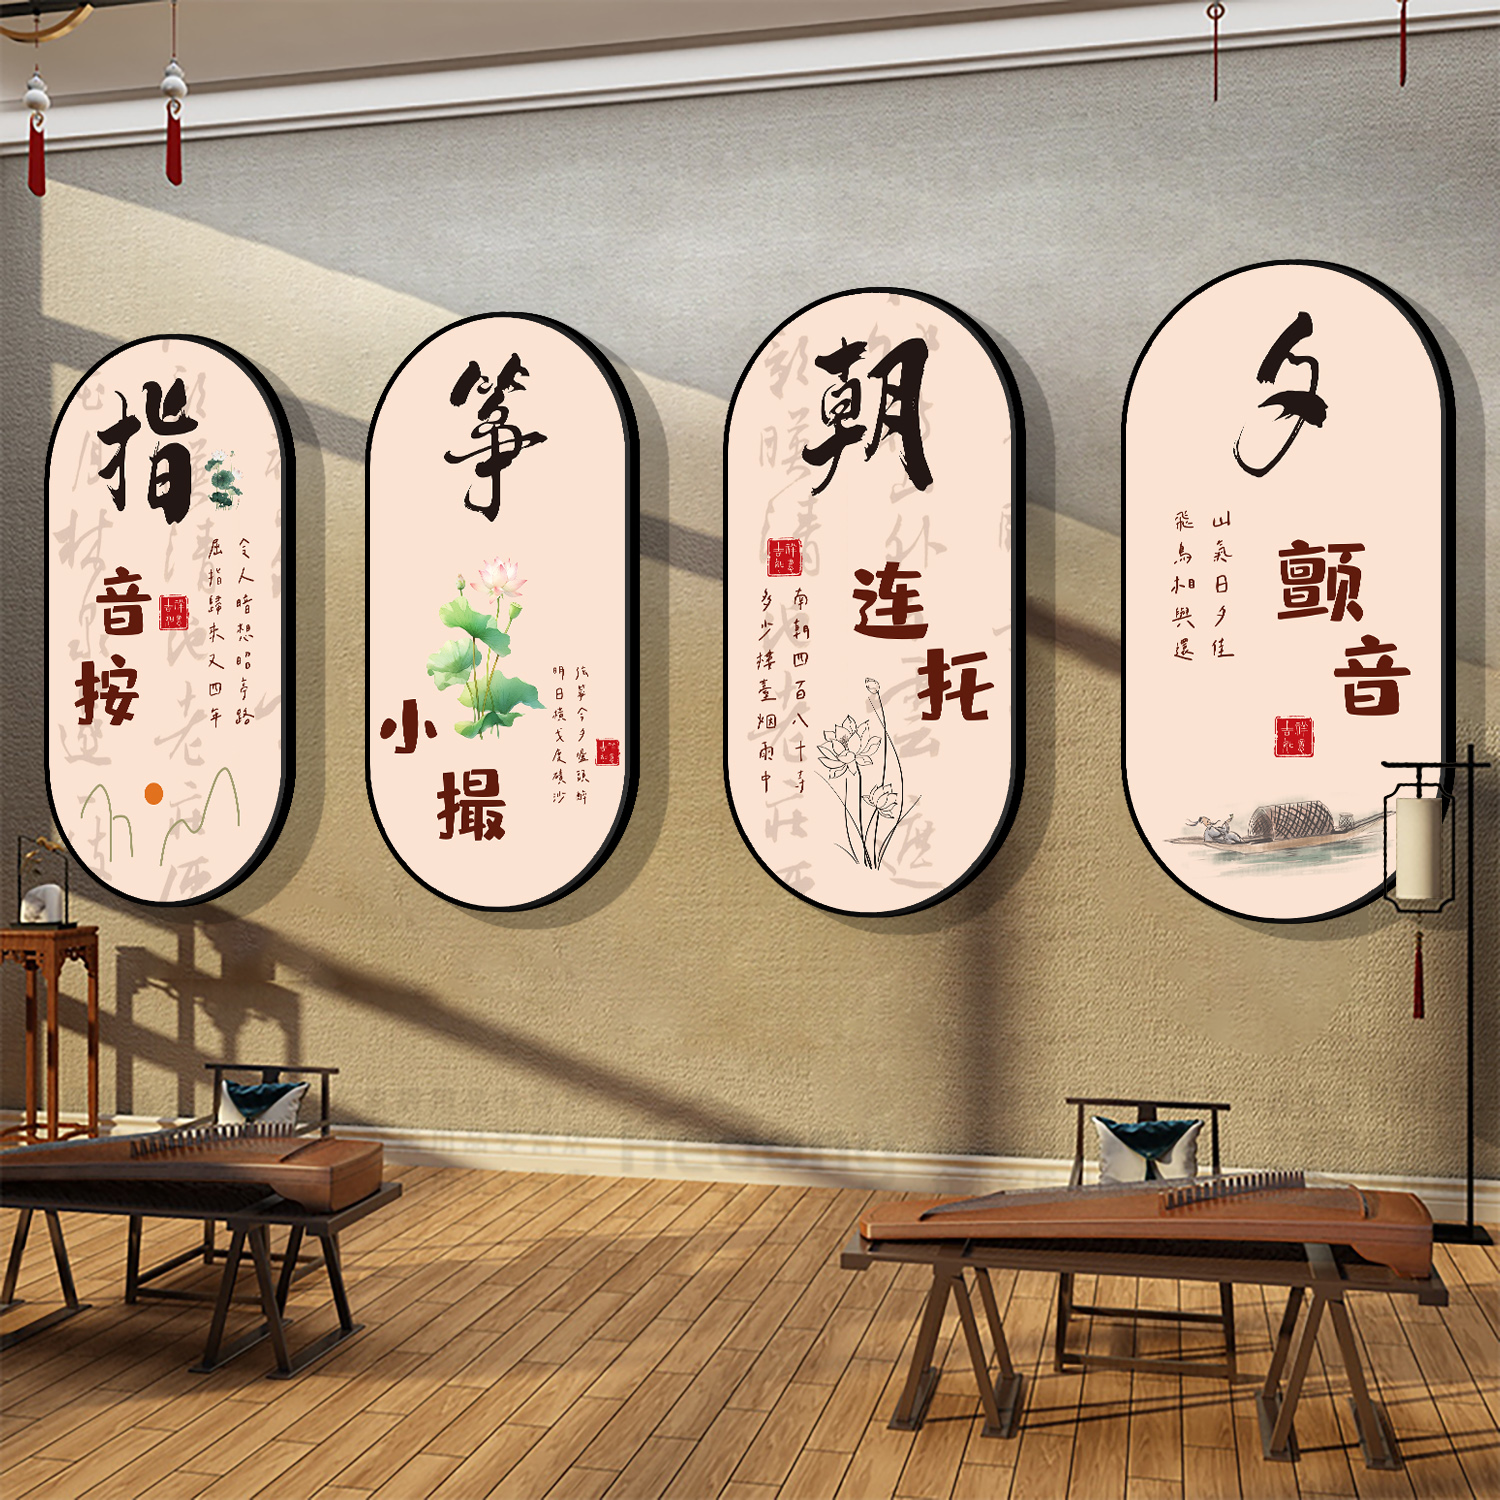 指
令人暗想昭亭路
屈指歸来又四年
音
按
筝
筝今夕
明日橫戈度磧沙
小
撮
朝
连
托
南朝四百八十寺
多少樓臺烟雨中
夕
山氣日夕佳
飛鳥相與還
颤
音